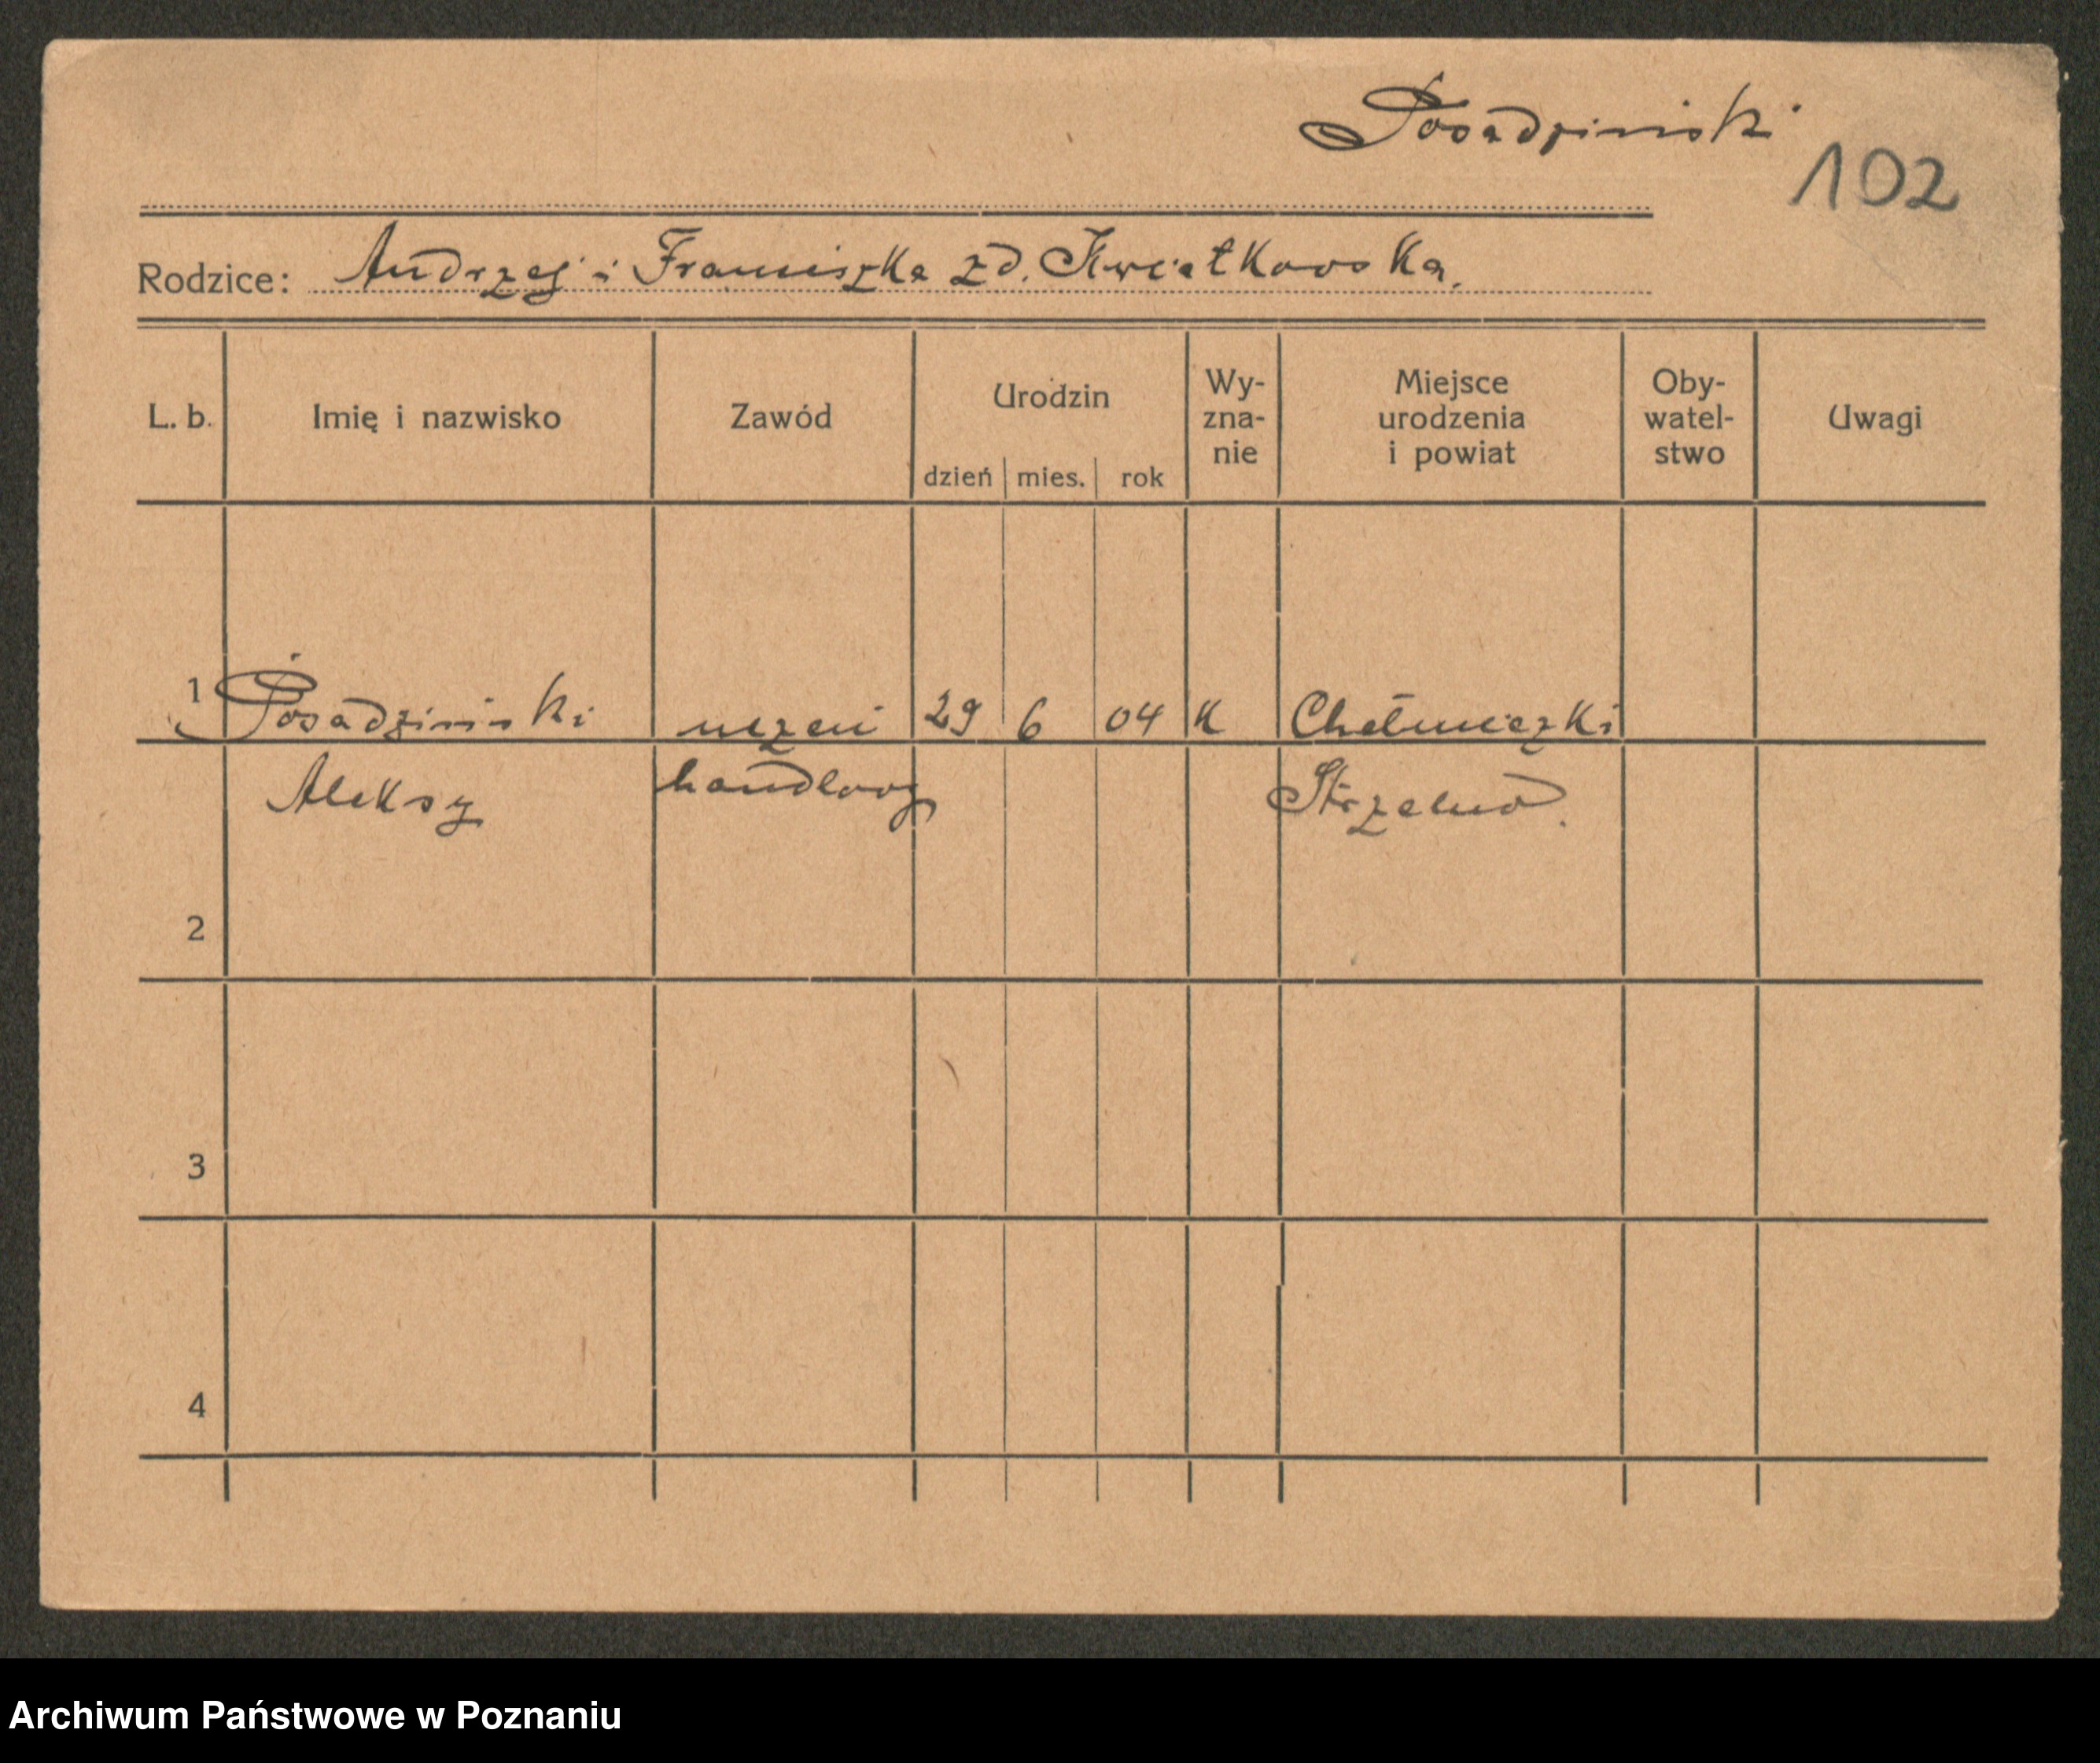 Posadziński
102
Rodzice: Andrzej i Franciszka zd. Kwiatkowska.
L. b. Imię i nazwisko Zawód Urodzin dzień mies. rok Wy-zna-nie Miejsce urodzenia i powiat Oby-watel-stwo Uwagi
1 Posadziński uczeń 29 6 04 K Chełmiczki
Aleksy handlowy Strzelno.
2
3
4
Archiwum Państwowe w Poznaniu